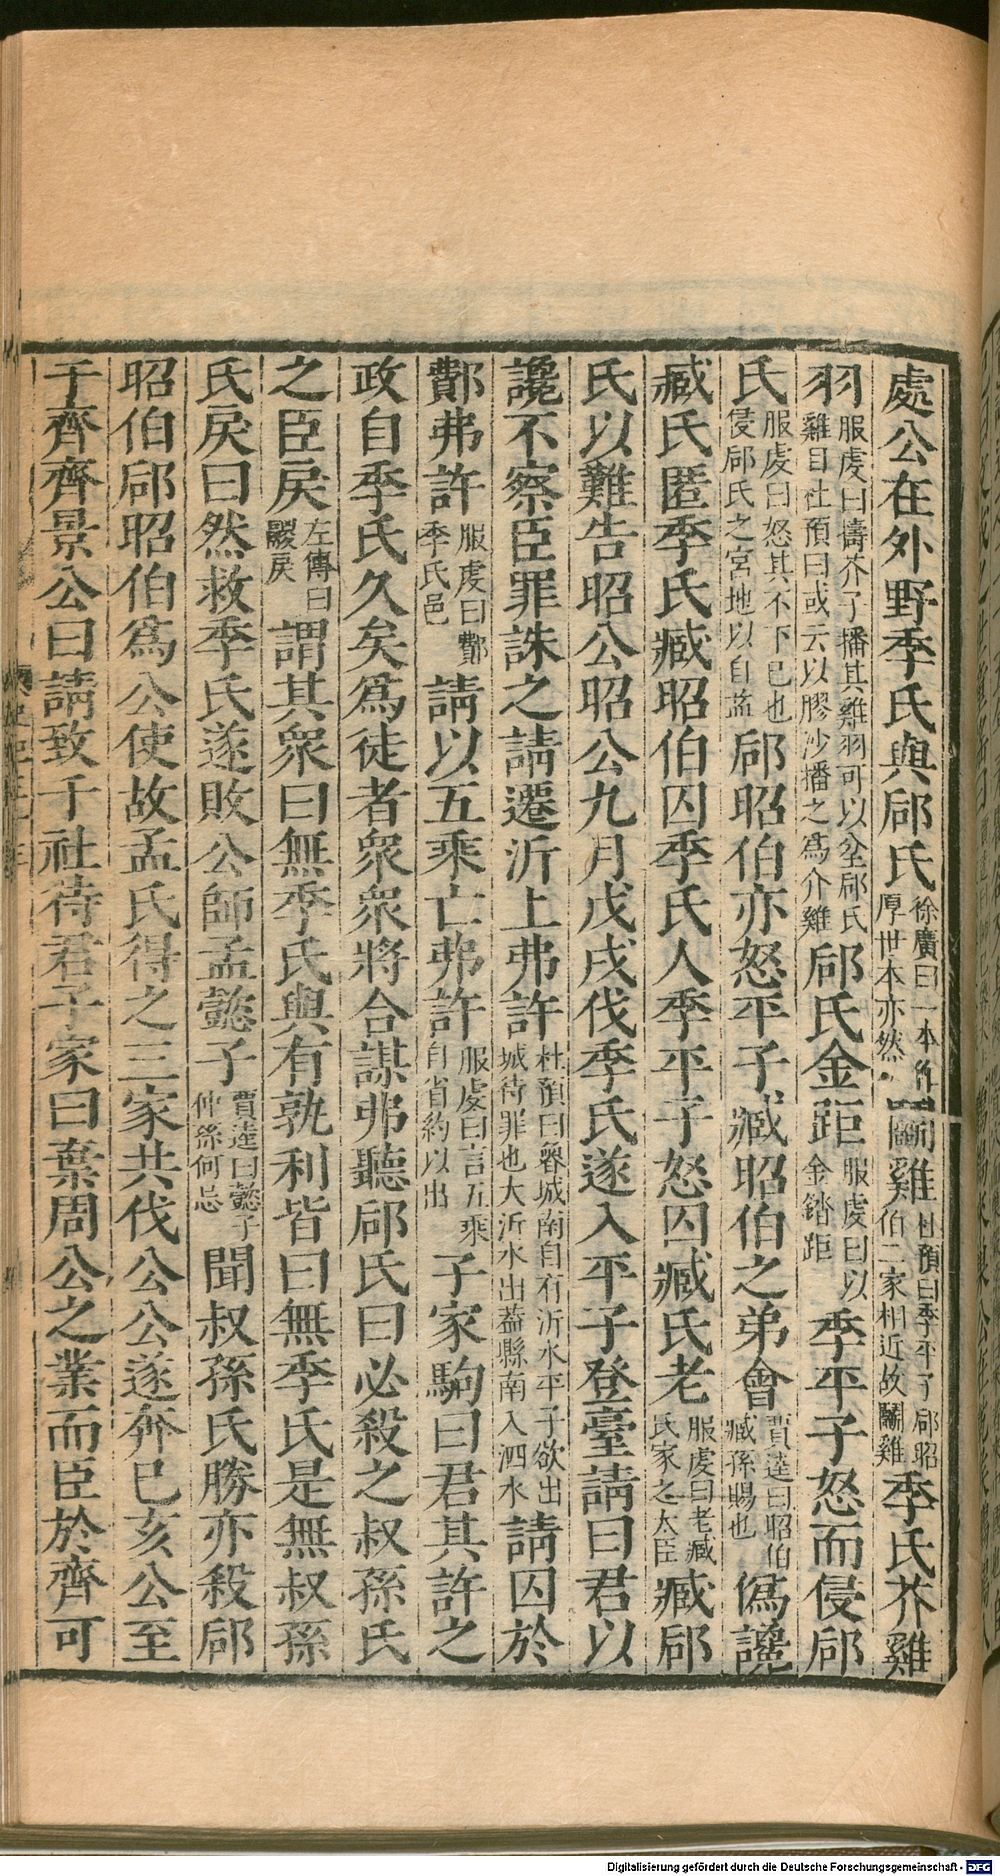 處公在外野季氏與郈氏徐廣曰一本作厚世本亦然鬬雞杜預曰季平子郈昭伯二家相近故鬬雞季氏芥雞
羽服虔曰擣芥子播其雞羽可以坌郈氏雞目杜預曰或云以膠沙播之爲介雞郈氏金距服虔曰以金錔距季平子怒而侵郈
氏服虔曰怒其不下已也侵郈氏之宮地以自益郈昭伯亦怒平子臧昭伯之弟會賈逵曰昭伯臧孫賜也僞讒
臧氏匿季氏臧昭伯囚季氏人季平子怒囚臧氏老服虔曰老臧氏家之大臣臧郈
氏以難告昭公昭公九月戊戌伐季氏遂入平子登臺請曰君以
讒不察臣罪誅之請遷沂上弗許杜預曰魯城南自有沂水平子欲出城待罪也大沂水出蓋縣南入泗水請囚於
鄪弗許服虔曰鄪季氏邑請以五乘亡弗許服虔曰言五乘自省約以出子家駒曰君其許之
政自季氏久矣爲徒者衆衆將合謀弗聽郈氏曰必殺之叔孫氏
之臣戾左傳曰鬷戾謂其衆曰無季氏與有孰利皆曰無季氏是無叔孫
氏戾曰然救季氏遂敗公師孟懿子賈逵曰懿子仲孫何忌聞叔孫氏勝亦殺郈
昭伯郈昭伯爲公使故孟氏得之三家共伐公公遂奔巳亥公至
于齊齊景公曰請致千社待君子家曰棄周公之業而臣於齊可
Digitalisierung gefördert durch die Deutsche Forschungsgemeinschaft - DFG